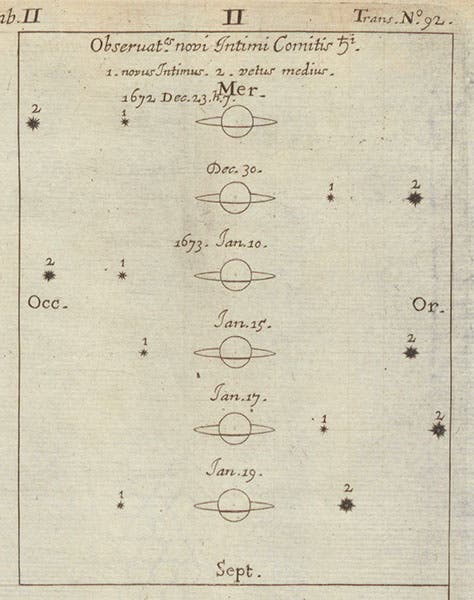 ab. II II Trans. N.º 92.
Observat.s novi Intimi Comitis ♄.i
1. novus Intimus. 2. vetus medius.
Mer.
1672 Dec. 23. h. 7.
2 1
Dec. 30.
1 2
1673. Jan. 10.
2 1
Occ. Or.
Jan. 15.
1 2
Jan. 17.
1 2
Jan. 19.
1 2
Sept.